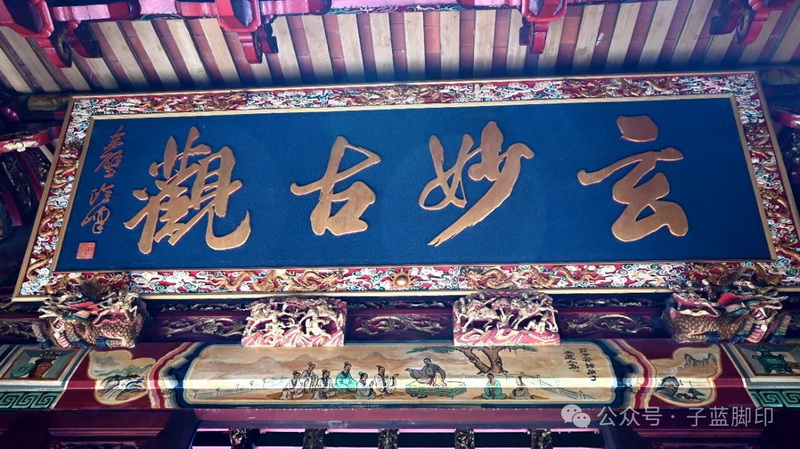 玄妙古觀
公众号 · 子蓝脚印